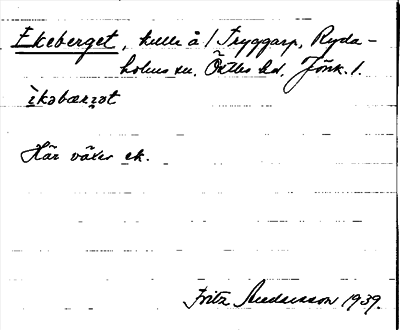 Ekeberget, kulle å / Tryggarp, Ryda-
holms sn. Östbo hd. Jönk. l.
ìkəbærɡət
Här växer ek.
Fritz Andersson 1939.